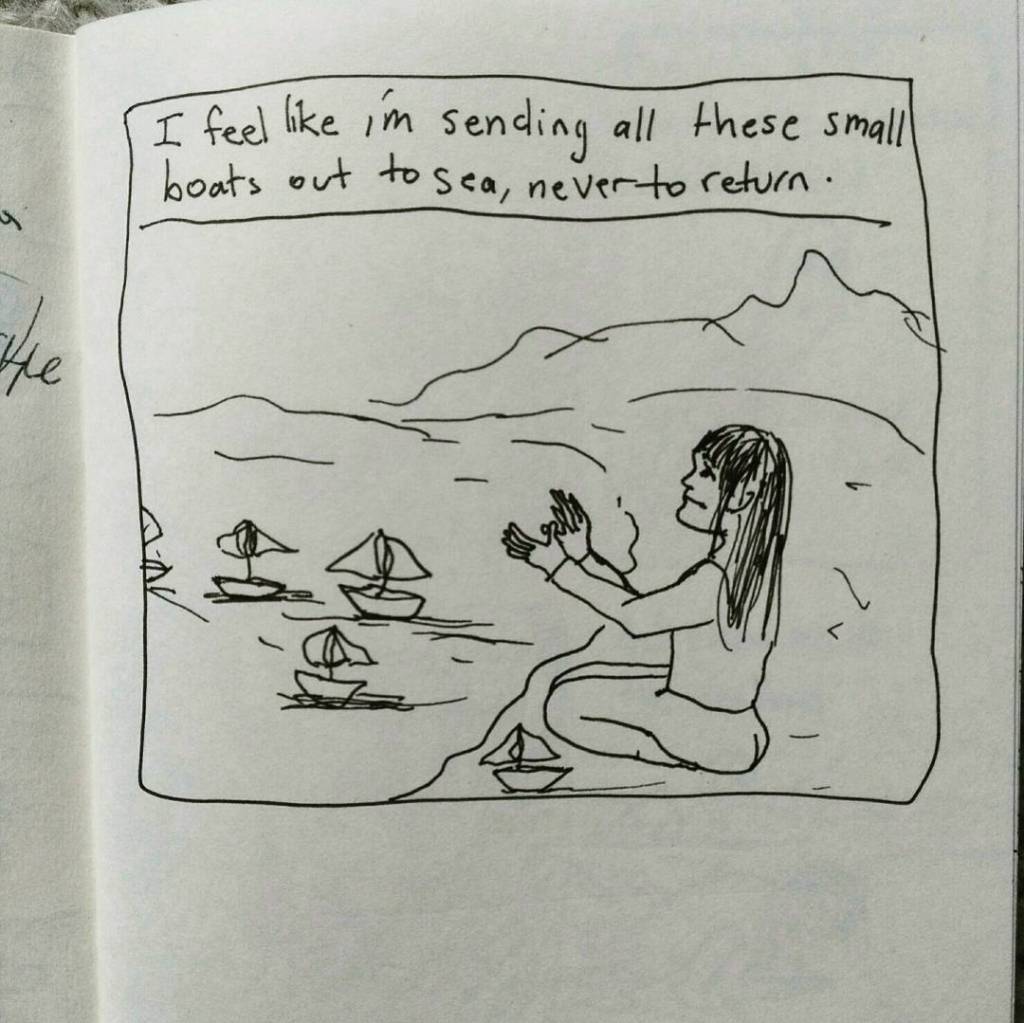 I feel like i'm sending all these small
boats out to sea, never to return.